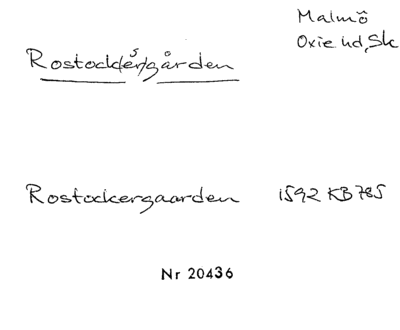 Malmö
Oxie hd, Sk
Rostock(er)sgården
Rostockergaarden 1592 KB 785
Nr 20436